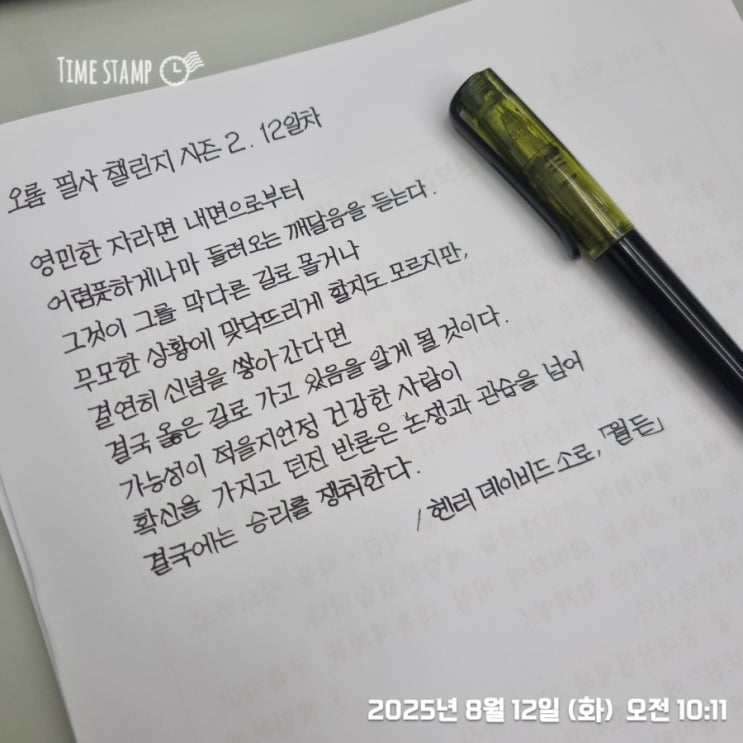 TIME STAMP
오롬 필사 챌린지 시즌 2. 12일차
영민한 자라면 내면으로부터
어렴풋하게나마 들려오는 깨달음을 듣는다.
그것이 그를 막다른 길로 몰거나
무모한 상황에 맞닥뜨리게 할지도 모르지만,
결연히 신념을 쌓아간다면
결국 옳은 길로 가고 있음을 알게 될 것이다.
가능성이 적을지언정 건강한 사람이
확신을 가지고 던진 반론은 논쟁과 관습을 넘어
결국에는 승리를 쟁취한다.
/ 헨리 데이비드 소로, 「월든」
2025년 8월 12일 (화) 오전 10:11